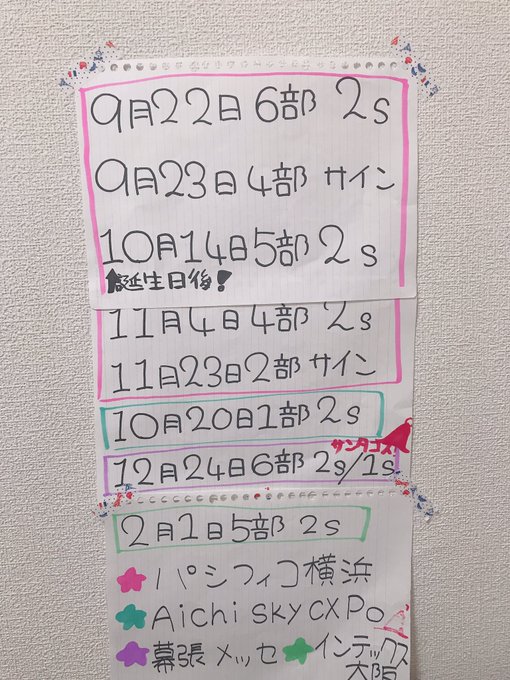 9月22日6部 2s
9月23日4部 サイン
10月14日5部 2s
誕生日後!
11月4日4部 2s
11月23日2部 サイン
10月20日1部 2s
サンタコス
12月24日6部 2s/1s
2月1日5部 2s
パシフィコ横浜
Aichi SKY CXPo
幕張メッセ インテックス
大阪